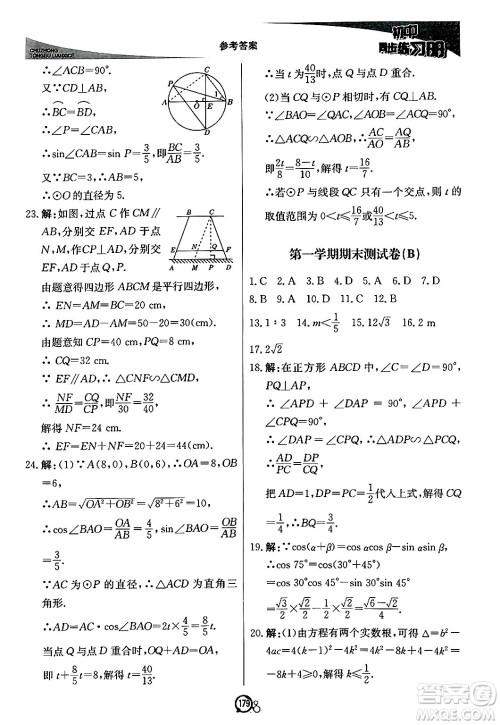 CHUZHONG
TONGBU LIANXICE
参考答案
初中
同步练习册
∴∠ACB=90°.
又∵CD⊥AB,
∴BC=BD,
∴∠P=∠1.
∴sin∠CAB=sin P=3/5, 即BC/AB=3/5.
又∵BC=3, ∴AB=5,
∴⊙O的直径为5.
23. 解:如图,过点C作CM∥
AD,分别交AB,EF于点
M,N,作CP⊥AD,分别交
EF,AD于点Q,P.
由题意得四边形ABCM是平行四边形,
∴EN=AM=BC=20 cm.
∴MD=AD-AM=50-20=30(cm).
由题意知CP=40 cm,PQ=8 cm,
∴CQ=32 cm.
∵EF∥AD, ∴△CNF∽△CMD.
∴NF/MD=CQ/CP,即NF/30=32/40.
解得NF=24 cm.
∴EF=EN+NF=20+24=44(cm).
24. 解:(1)∵A(8,0),B(0,6),∴OA=8,OB
=6,
∴AB=√(OA²+OB²)=√(8²+6²)=10.
∴cos∠BAO=OA/AB=4/5,sin∠BAO=OB/AB=
3/5.
∵AC为⊙P的直径,∴△ACD为直角三角
形.
∴AD=AC·cos∠BAO=2t×4/5=8/5t.
当点Q与点D重合时,OQ+AD=OA,
即t+8/5t=8,解得t=40/13.
∴当t为40/13时,点Q与点D重合.
(2)当QC与⊙P相切时,有QC⊥AB,
∴△ACQ∽△AOB,∴AC/AO=AQ/AB,
即2t/8=(8-t)/10,解得t=16/7.
∵⊙P与线段QC只有一个交点,∴t的
取值范围为0<t≤16/7或40/13<t≤5.
第一学期期末测试卷(B)
1. C 2. A 3. D 4. C 5. C 6. D 7. D
8. B 9. B 10. D 11. A 12. D
13. 1∶3 14. m<1/5 15. 12√3 16. 2
17. 2√2
18. 解:在正方形ABCD中,∠C=∠D=90°,
PQ⊥AP,
∴∠APQ=90°,∴△ADP∽△PCQ,
∴AD/PC=DP/CQ.
把AD=1,DP=PC=1/2代入上式,解得CQ
=1/4.
19. 解:∵cos(α+β)=cos αcos β-sin αsin β,
∴cos 75°=cos(30°+45°)
=cos 30°cos 45°-sin 30°sin 45°
=√3/2×√2/2-1/2×√2/2=(√6-√2)/4.
20. 解:(1)由方程有两个实数根,可得Δ=b²-
4ac=4(k-1)²-4k²=4k²-8k+4-4k²
=-8k+4≥0.解得k≤1/2.
179